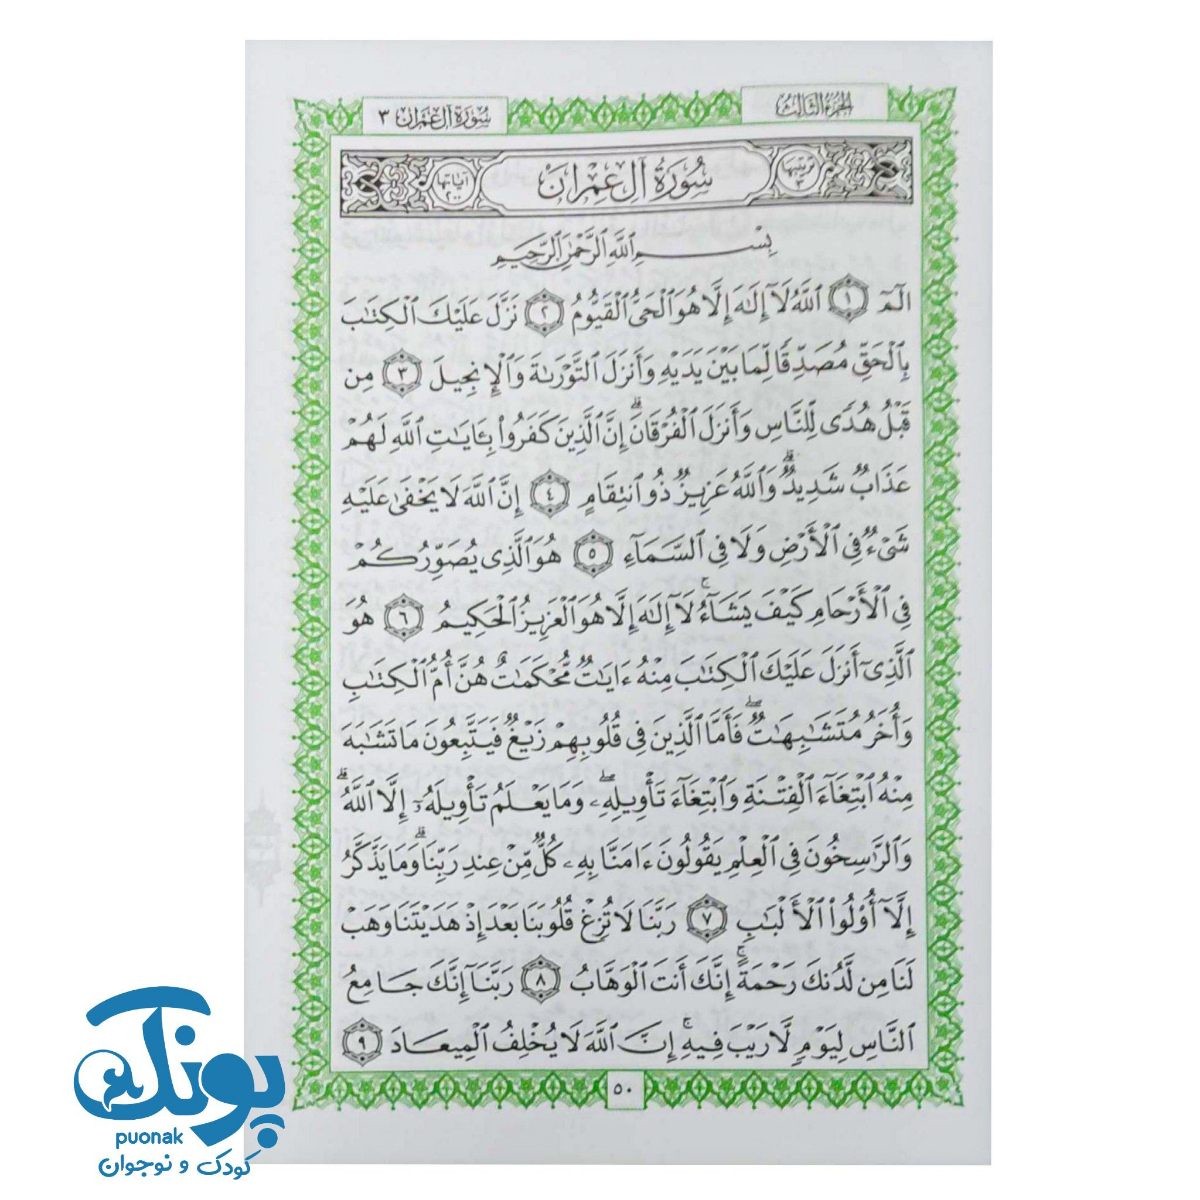 الجزء الثالث
سورة آل عمران ٣
ترتيبها ٣
سورة آل عمران
آياتها ٢٠٠
بِسْمِ ٱللَّهِ ٱلرَّحْمَٰنِ ٱلرَّحِيمِ
الٓمٓ ١ ٱللَّهُ لَآ إِلَٰهَ إِلَّا هُوَ ٱلْحَىُّ ٱلْقَيُّومُ ٢ نَزَّلَ عَلَيْكَ ٱلْكِتَٰبَ
بِٱلْحَقِّ مُصَدِّقًا لِّمَا بَيْنَ يَدَيْهِ وَأَنزَلَ ٱلتَّوْرَىٰةَ وَٱلْإِنجِيلَ ٣ مِن
قَبْلُ هُدًى لِّلنَّاسِ وَأَنزَلَ ٱلْفُرْقَانَ ۗ إِنَّ ٱلَّذِينَ كَفَرُوا۟ بِـَٔايَٰتِ ٱللَّهِ لَهُمْ
عَذَابٌ شَدِيدٌ ۗ وَٱللَّهُ عَزِيزٌ ذُو ٱنتِقَامٍ ٤ إِنَّ ٱللَّهَ لَا يَخْفَىٰ عَلَيْهِ
شَىْءٌ فِى ٱلْأَرْضِ وَلَا فِى ٱلسَّمَآءِ ٥ هُوَ ٱلَّذِى يُصَوِّرُكُمْ
فِى ٱلْأَرْحَامِ كَيْفَ يَشَآءُ ۚ لَآ إِلَٰهَ إِلَّا هُوَ ٱلْعَزِيزُ ٱلْحَكِيمُ ٦ هُوَ
ٱلَّذِىٓ أَنزَلَ عَلَيْكَ ٱلْكِتَٰبَ مِنْهُ ءَايَٰتٌ مُّحْكَمَٰتٌ هُنَّ أُمُّ ٱلْكِتَٰبِ
وَأُخَرُ مُتَشَٰبِهَٰتٌ ۖ فَأَمَّا ٱلَّذِينَ فِى قُلُوبِهِمْ زَيْغٌ فَيَتَّبِعُونَ مَا تَشَٰبَهَ
مِنْهُ ٱبْتِغَآءَ ٱلْفِتْنَةِ وَٱبْتِغَآءَ تَأْوِيلِهِۦ ۖ وَمَا يَعْلَمُ تَأْوِيلَهُۥٓ إِلَّا ٱللَّهُ ۗ
وَٱلرَّٰسِخُونَ فِى ٱلْعِلْمِ يَقُولُونَ ءَامَنَّا بِهِۦ كُلٌّ مِّنْ عِندِ رَبِّنَا ۗ وَمَا يَذَّكَّرُ
إِلَّآ أُو۟لُوا۟ ٱلْأَلْبَٰبِ ٧ رَبَّنَا لَا تُزِغْ قُلُوبَنَا بَعْدَ إِذْ هَدَيْتَنَا وَهَبْ
لَنَا مِن لَّدُنكَ رَحْمَةً ۚ إِنَّكَ أَنتَ ٱلْوَهَّابُ ٨ رَبَّنَآ إِنَّكَ جَامِعُ
ٱلنَّاسِ لِيَوْمٍ لَّا رَيْبَ فِيهِ ۚ إِنَّ ٱللَّهَ لَا يُخْلِفُ ٱلْمِيعَادَ ٩
٥٠
پونک
puonak
کودک و نوجوان